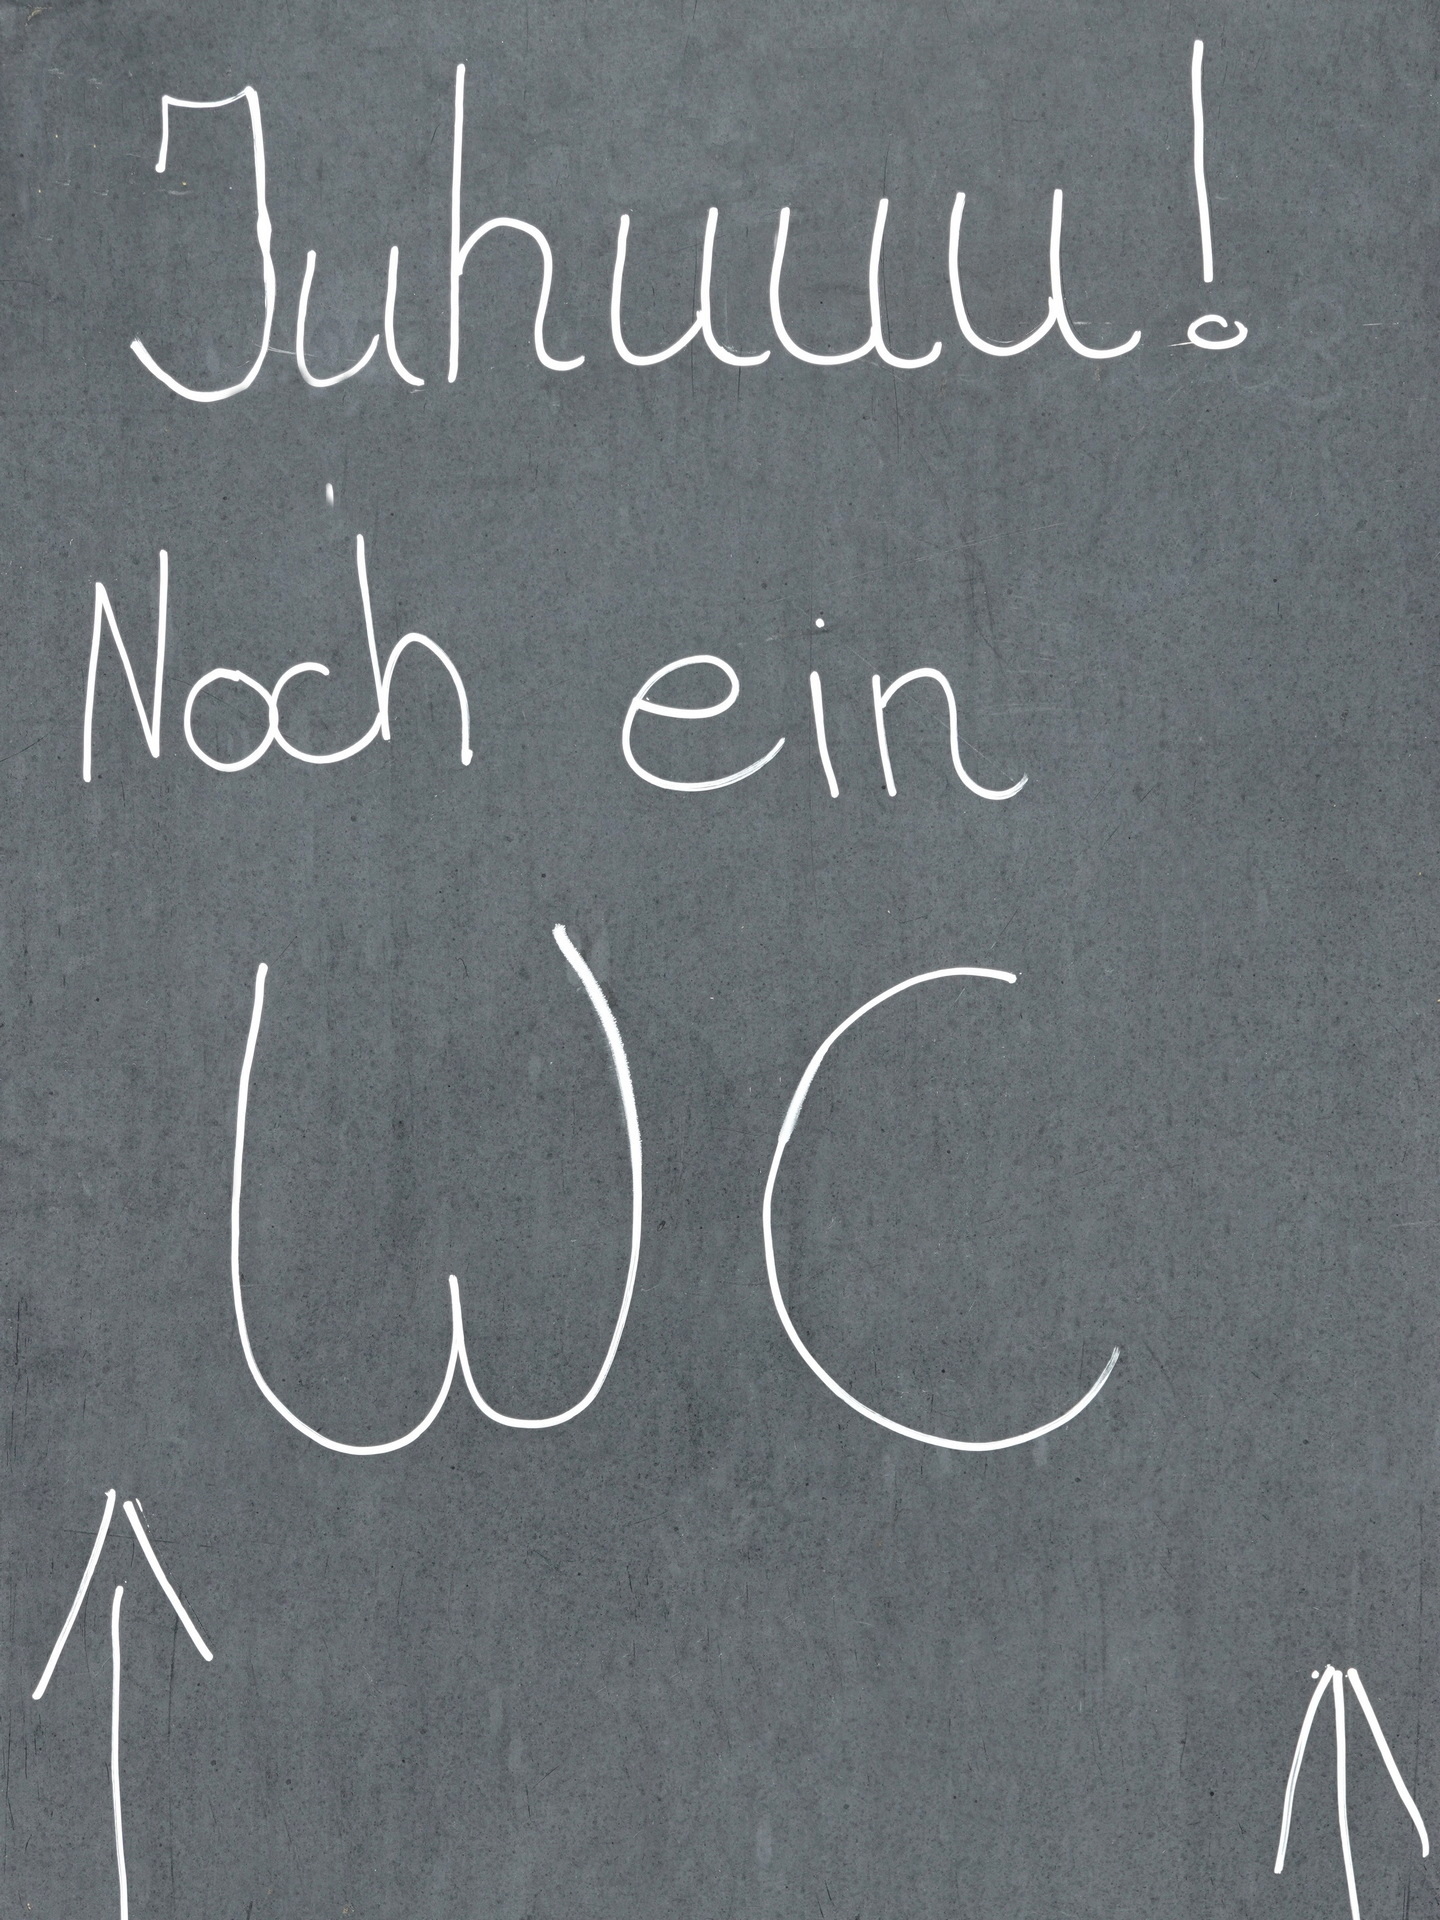 Juhuuu!
Noch ein
WC